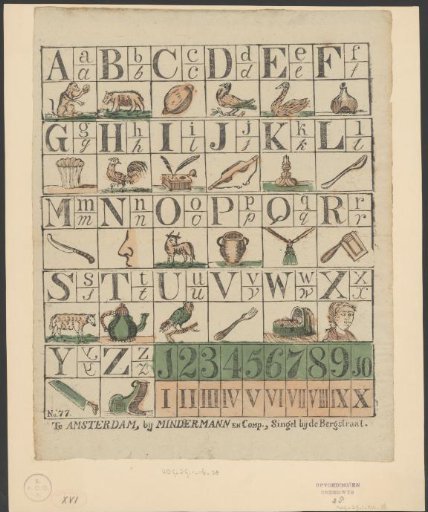 A a B b C c D d E e F f
a b c d e f
G g H h I i J j K k L l
g h i j k l
M m N n O o P p Q q R r
m n o p q r
S s T t U u V v W w X x
s t u v w x
Y y Z z 1 2 3 4 5 6 7 8 9 10
y z
I II III IV V VI VII VIII IX X
No. 77.
Te AMSTERDAM, bij MINDERMANN EN COMP., Singel bij de Bergstraat.
XVI